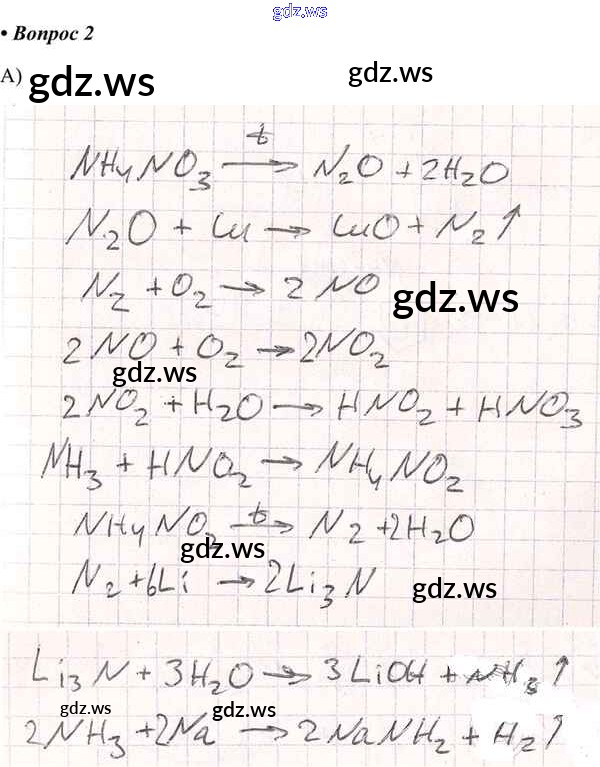 gdz.ws
• Вопрос 2
А) gdz.ws gdz.ws
NH₄NO₃ —t→ N₂O + 2H₂O
N₂O + Cu → CuO + N₂↑
N₂ + O₂ → 2NO gdz.ws
2NO + O₂ → 2NO₂
gdz.ws
2NO₂ + H₂O → HNO₂ + HNO₃
NH₃ + HNO₂ → NH₄NO₂
NH₄NO₂ —t→ N₂ + 2H₂O
gdz.ws
N₂ + 6Li → 2Li₃N gdz.ws
Li₃N + 3H₂O → 3LiOH + NH₃↑
gdz.ws gdz.ws
2NH₃ + 2Na → 2NaNH₂ + H₂↑